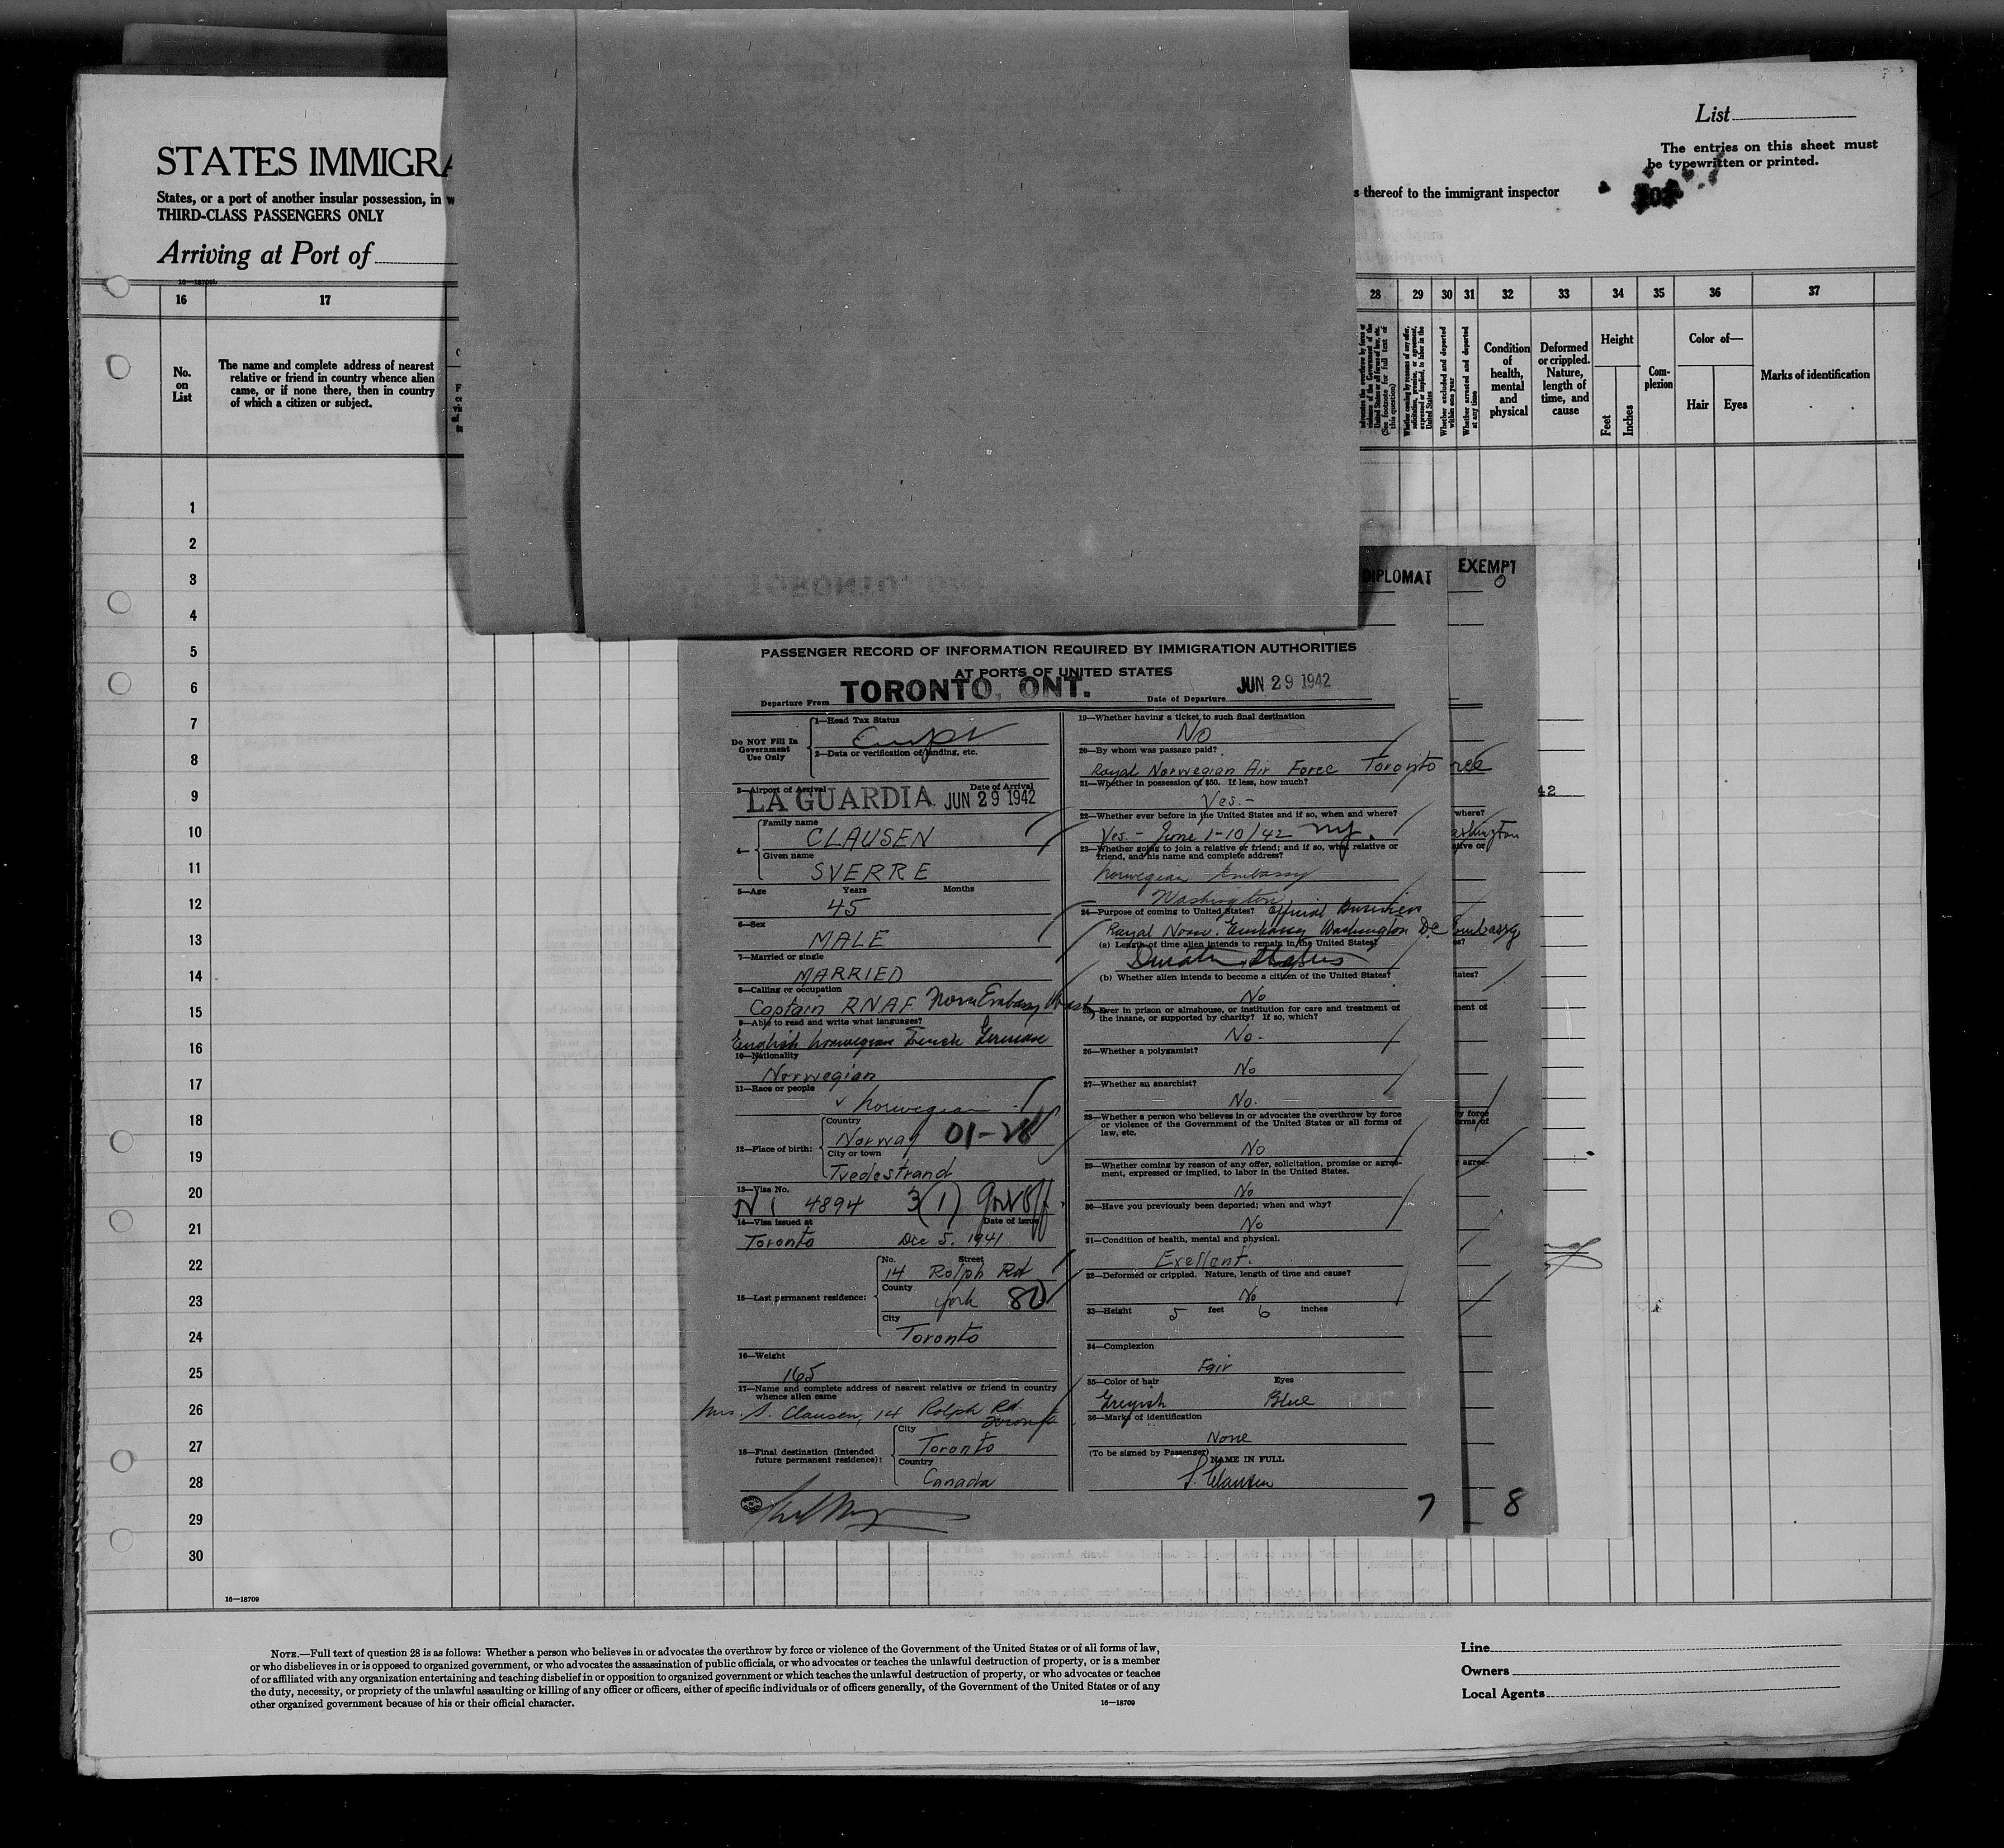 List
The entries on this sheet must
be typewritten or printed.
STATES IMMIGRA
States, or a port of another insular possession, in w
s thereof to the immigrant inspector
THIRD-CLASS PASSENGERS ONLY
Arriving at Port of
16 17 28 29 30 31 32 33 34 35 36 37
No.
on
List
The name and complete address of nearest
relative or friend in country whence alien
came, or if none there, then in country
of which a citizen or subject.
United States or all forms of law, etc.
(See footnote for full text of
this question)
Whether coming by reasons of any offer,
solicitation, promise, or agreement,
expressed or implied, to labor in the
United States
Whether excluded and deported
within one year
Whether arrested and deported
at any time
Condition
of
health,
mental
and
physical
Deformed
or crippled.
Nature,
length of
time, and
cause
Height
Feet
Inches
Com-
plexion
Color of—
Hair Eyes
Marks of identification
1
2
3
4
5
6
7
8
9
10
11
12
13
14
15
16
17
18
19
20
21
22
23
24
25
26
27
28
29
30
DIPLOMAT EXEMPT
0
PASSENGER RECORD OF INFORMATION REQUIRED BY IMMIGRATION AUTHORITIES
AT PORTS OF UNITED STATES
Departure From TORONTO, ONT. Date of Departure JUN 29 1942
Do NOT Fill In
Government
Use Only
1—Head Tax Status
2—Data or verification of landing, etc.
3—Airport of Arrival Date of Arrival
LA GUARDIA JUN 29 1942
4—
Family name
CLAUSEN
Given name
SVERRE
5—Age Years Months
45
6—Sex
MALE
7—Married or single
MARRIED
8—Calling or occupation
Captain RNAF Norw Embassy Wash,
9—Able to read and write what languages?
English Norwegian French German
10—Nationality
Norwegian
11—Race or people
Norwegian
12—Place of birth:
Country
Norway 01-28
City or town
Tvedestrand
13—Visa No.
4894 3(1) Gov Off
14—Visa issued at Date of issue
Toronto Dec 5. 1941
15—Last permanent residence:
No. Street
14 Rolph Rd
County
York 80
City
Toronto
16—Weight
165
17—Name and complete address of nearest relative or friend in country
whence alien came
Mrs. S. Clausen, 14 Rolph Rd
Toronto
18—Final destination (Intended
future permanent residence):
City
Toronto
Country
Canada
19—Whether having a ticket to such final destination
No
20—By whom was passage paid?
Royal Norwegian Air Force Toronto
21—Whether in possession of $50. If less, how much?
Yes.-
22—Whether ever before in the United States and if so, when and where?
Yes.- June 1-10/42 NY.
23—Whether going to join a relative or friend; and if so, what relative or
friend, and his name and complete address?
Norwegian Embassy
Washington
24—Purpose of coming to United States? Official Business
Royal Norw. Embassy Washington DC
(a) Length of time alien intends to remain in the United States?
(b) Whether alien intends to become a citizen of the United States?
No
25—Ever in prison or almshouse, or institution for care and treatment of
the insane, or supported by charity? If so, which?
No.
26—Whether a polygamist?
No
27—Whether an anarchist?
No.
28—Whether a person who believes in or advocates the overthrow by force
or violence of the Government of the United States or all forms of
law, etc.
No
29—Whether coming by reason of any offer, solicitation, promise or agree-
ment, expressed or implied, to labor in the United States.
No
30—Have you previously been deported; when and why?
No
31—Condition of health, mental and physical.
Exellent.
32—Deformed or crippled. Nature, length of time and cause?
No
33—Height 5 feet 6 inches
34—Complexion
Fair
35—Color of hair Eyes
Greyish Blue
36—Marks of identification
None
(To be signed by Passenger) NAME IN FULL
S. Clausen
7
where?
ashington
ative or
Embassy
es?
tates?
ment of
by force
orms of
r agree-
8
42
16—18709
NOTE.—Full text of question 28 is as follows: Whether a person who believes in or advocates the overthrow by force or violence of the Government of the United States or of all forms of law,
or who disbelieves in or is opposed to organized government, or who advocates the assassination of public officials, or who advocates or teaches the unlawful destruction of property, or is a member
of or affiliated with any organization entertaining and teaching disbelief in or opposition to organized government or which teaches the unlawful destruction of property, or who advocates or teaches
the duty, necessity, or propriety of the unlawful assaulting or killing of any officer or officers, either of specific individuals or of officers generally, of the Government of the United States or of any
other organized government because of his or their official character.
16—18709
Line
Owners
Local Agents